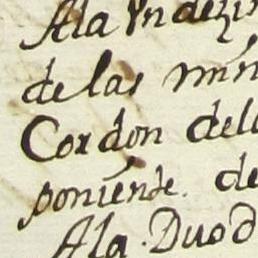 Ala Vndezi
de las min
Cordon del
poniente. de
Ala. Duod